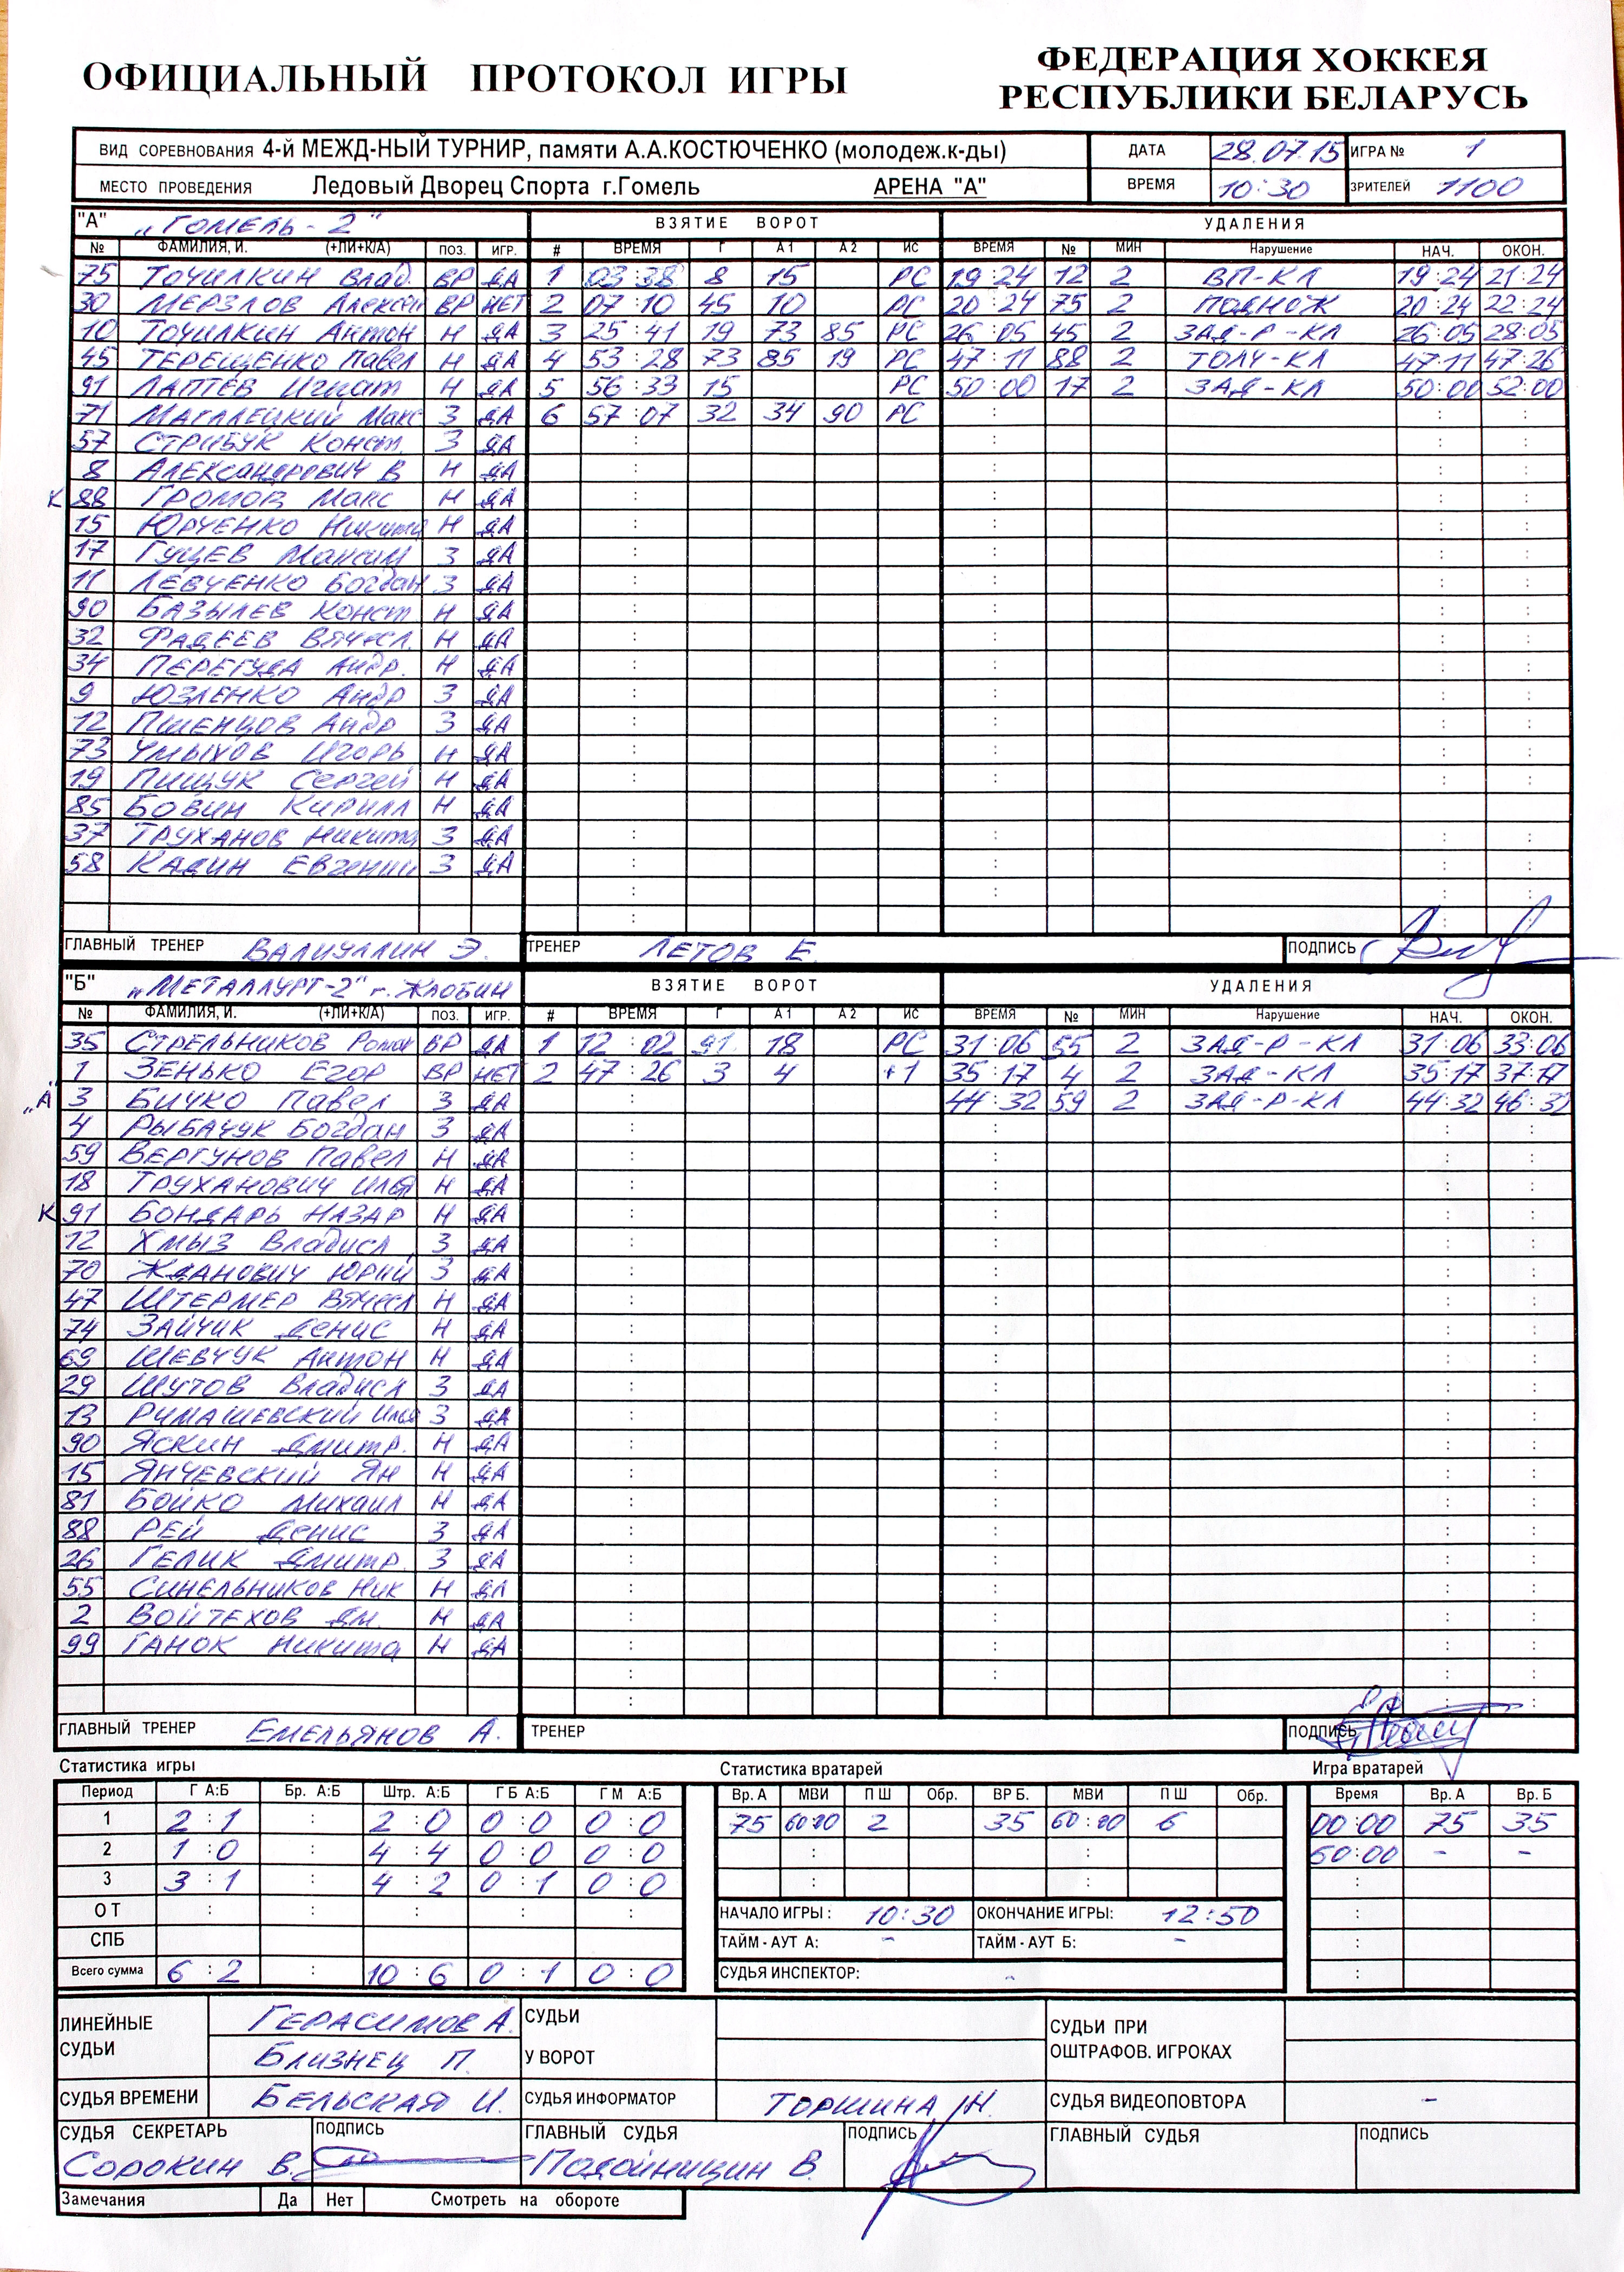 ОФИЦИАЛЬНЫЙ ПРОТОКОЛ ИГРЫ
ФЕДЕРАЦИЯ ХОККЕЯ
РЕСПУБЛИКИ БЕЛАРУСЬ
ВИД СОРЕВНОВАНИЯ 4-й МЕЖД-НЫЙ ТУРНИР, памяти А.А.КОСТЮЧЕНКО (молодеж.к-ды) ДАТА 28.07.15 ИГРА № 1
МЕСТО ПРОВЕДЕНИЯ Ледовый Дворец Спорта г.Гомель АРЕНА "А" ВРЕМЯ 10:30 ЗРИТЕЛЕЙ 1100
"А" „ГОМЕЛЬ-2" ВЗЯТИЕ ВОРОТ УДАЛЕНИЯ
№ ФАМИЛИЯ, И. (+ЛИ+К/А) ПОЗ. ИГР. # ВРЕМЯ Г А 1 А 2 ИС ВРЕМЯ № МИН Нарушение НАЧ. ОКОН.
75 ТОЧИЛКИН Влад. ВР ДА 1 03:38 8 15 РС 19:24 12 2 ВП-КЛ 19:24 21:24
30 МЕРЗЛОВ Алексан ВР НЕТ 2 07:10 45 10 РС 20:24 75 2 ПОДНОЖ 20:24 22:24
10 ТОЧИЛКИН Антон Н ДА 3 25:41 19 73 85 РС 26:05 45 2 ЗАД-Р-КЛ 26:05 28:05
45 ТЕРЕЩЕНКО Павел Н ДА 4 53:28 73 85 19 РС 47:11 88 2 ТОЛЧ-КЛ 47:11 47:26
91 ЛАПТЕВ Игнат Н ДА 5 56:33 15 РС 50:00 17 2 ЗАД-КЛ 50:00 52:00
71 Макс З ДА 6 57:07 32 34 90 РС
57 СТРИБУК Конст. З ДА
8 АЛЕКСАНДРОВИЧ В Н ДА
К 88 ГРОМОВ Макс Н ДА
15 ЮРЧЕНКО Никита Н ДА
17 ГУЩЕВ Максим З ДА
11 ЛЕВЧЕНКО Богдан З ДА
90 БАЗЫЛЕВ Конст Н ДА
32 ФАДЕЕВ Вячесл. Н ДА
34 ПЕРЕГУДА Андр. Н ДА
9 ЮЗЛЕНКО Андр З ДА
12 ПШЕНЦОВ Андр З ДА
73 ЧМЫХОВ Игорь Н ДА
19 ПИЩУК Сергей Н ДА
85 БОВИН Кирилл Н ДА
37 ТРУХАНОВ Никита З ДА
58 КАДИН Евгений З ДА
ГЛАВНЫЙ ТРЕНЕР ВАЛИУЛЛИН Э. ТРЕНЕР ЛЕТОВ Е. ПОДПИСЬ
"Б" „МЕТАЛЛУРГ-2" г. ЖЛОБИН ВЗЯТИЕ ВОРОТ УДАЛЕНИЯ
№ ФАМИЛИЯ, И. (+ЛИ+К/А) ПОЗ. ИГР. # ВРЕМЯ Г А 1 А 2 ИС ВРЕМЯ № МИН Нарушение НАЧ. ОКОН.
35 СТРЕЛЬНИКОВ Роман ВР ДА 1 12:02 91 18 РС 31:06 55 2 ЗАД-Р-КЛ 31:06 33:06
1 ЗЕНЬКО Егор ВР НЕТ 2 47:26 3 4 +1 35:17 4 2 ЗАД-КЛ 35:17 37:17
„А" 3 БИЧКО Павел З ДА 44:32 59 2 ЗАД-Р-КЛ 44:32 46:32
4 РЫБАЧУК Богдан З ДА
59 ВЕРГУНОВ Павел Н ДА
18 ТРУХАНОВИЧ Илья Н ДА
К 91 БОНДАРЬ НАЗАР Н ДА
12 ХМЫЗ Владисл З ДА
70 ЖДАНОВИЧ Юрий З ДА
47 ШТЕРМЕР Вячесл Н ДА
74 ЗАЙЧИК Денис Н ДА
69 ШЕВЧУК Антон Н ДА
29 ШУТОВ Владисл З ДА
13 РИМАШЕВСКИЙ Илья З ДА
90 ЯСКИН Дмитр. Н ДА
15 ЯНЧЕВСКИЙ Ян Н ДА
81 БОЙКО Михаил Н ДА
88 РЕЙ Денис З ДА
26 ГЕЛИК Дмитр. З ДА
55 СИНЕЛЬНИКОВ Ник Н ДА
2 ВОЙТЕХОВ Дм. Н ДА
99 ГАНОК Никита Н ДА
ГЛАВНЫЙ ТРЕНЕР ЕМЕЛЬЯНОВ А. ТРЕНЕР ПОДПИСЬ
Статистика игры Статистика вратарей Игра вратарей
Период Г А:Б Бр. А:Б Штр. А:Б Г Б А:Б Г М А:Б Вр. А МВИ П Ш Обр. ВР Б. МВИ П Ш Обр. Время Вр. А Вр. Б
1 2:1 : 2:0 0:0 0:0 75 60:00 2 35 60:00 6 00:00 75 35
2 1:0 : 4:4 0:0 0:0 : : 60:00 - -
3 3:1 : 4:2 0:1 0:0 : : :
О Т : : : : : НАЧАЛО ИГРЫ: 10:30 ОКОНЧАНИЕ ИГРЫ: 12:50 :
СПБ ТАЙМ-АУТ А: - ТАЙМ-АУТ Б: - :
Всего сумма 6:2 : 10:6 0:1 0:0 СУДЬЯ ИНСПЕКТОР: - :
ЛИНЕЙНЫЕ СУДЬИ ГЕРАСИМОВ А. СУДЬИ У ВОРОТ СУДЬИ ПРИ ОШТРАФОВ. ИГРОКАХ
БЛИЗНЕЦ П.
СУДЬЯ ВРЕМЕНИ БЕЛЬСКАЯ И. СУДЬЯ ИНФОРМАТОР ТОРШИНА Н. СУДЬЯ ВИДЕОПОВТОРА -
СУДЬЯ СЕКРЕТАРЬ ПОДПИСЬ ГЛАВНЫЙ СУДЬЯ ПОДПИСЬ ГЛАВНЫЙ СУДЬЯ ПОДПИСЬ
СОРОКИН В. ПОЛОЙНИЦИН В.
Замечания Да Нет Смотреть на обороте